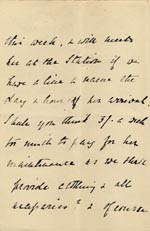 this week, & will meet
her at the Station if we
have a line to name the
day & hour of her arrival.
Shall you think 3/- a week
too much to pay for her
maintenance as we shall
provide clothing & all
necessaries? & of course